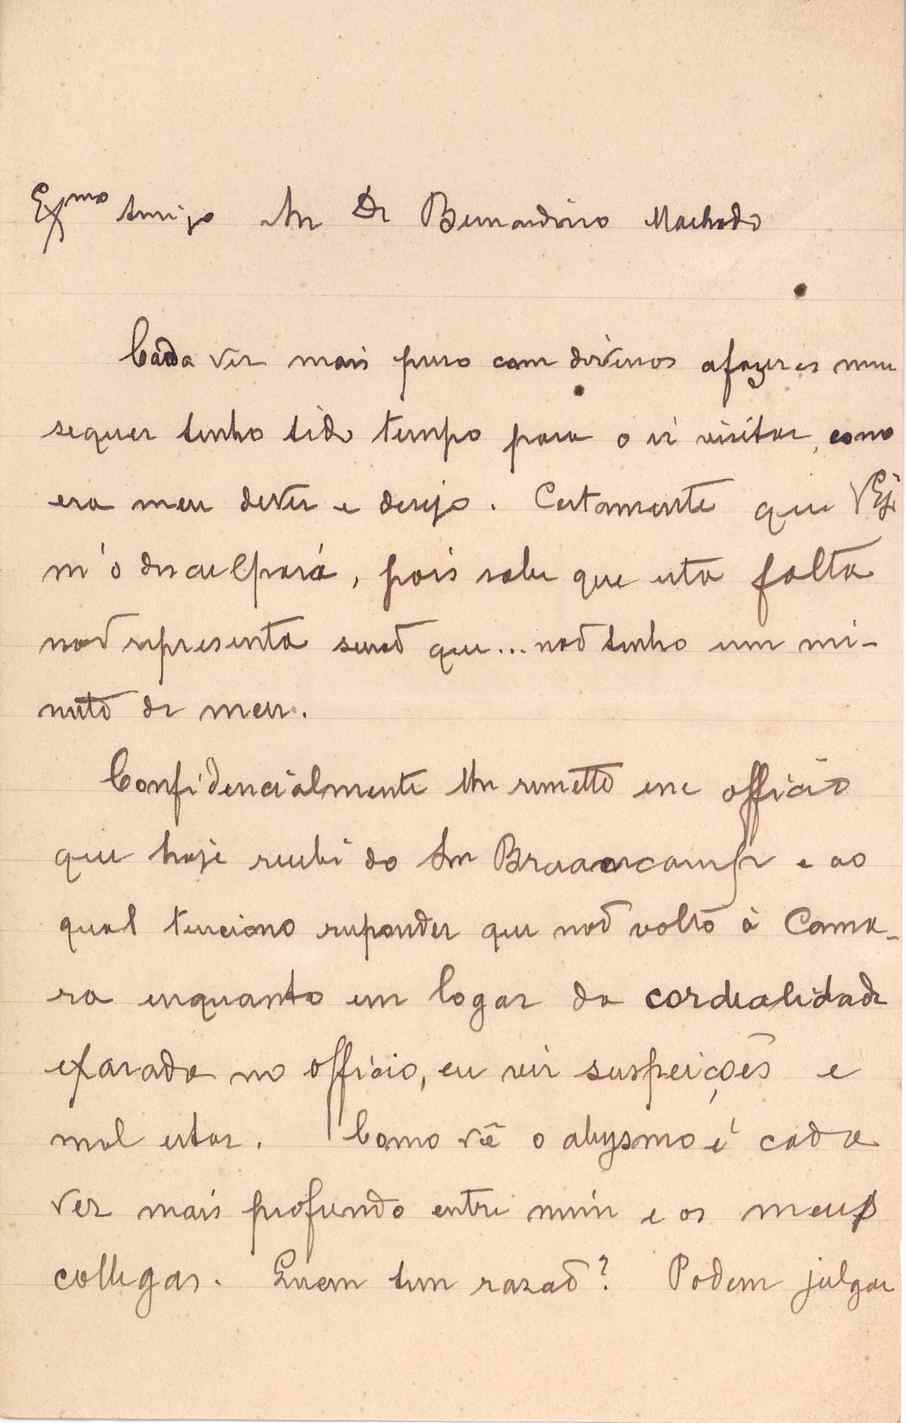 Exmo Amigo Snr Dr Bernardino Machado
Cada vez mais preso com diversos afazeres nem
sequer tenho tido tempo para o ir visitar, como
era meu dever e desejo. Certamente que VExa
m'o desculpará, pois sabe que esta falta
naõ representa senaõ que... naõ tenho um mi-
nuto de meu.
Confidencialmente lhe remetto esse officio
que hoje recebi do Snr Braamcamp e ao
qual tenciono responder que naõ volto á Cama-
ra enquanto em logar da cordealidade
exarada no officio, eu vir suspeiçoẽs e
mal estar. Como vê o abysmo é cada
vez mais profundo entre mim e os meus
collegas. Quem tem razaõ? Podem julgar